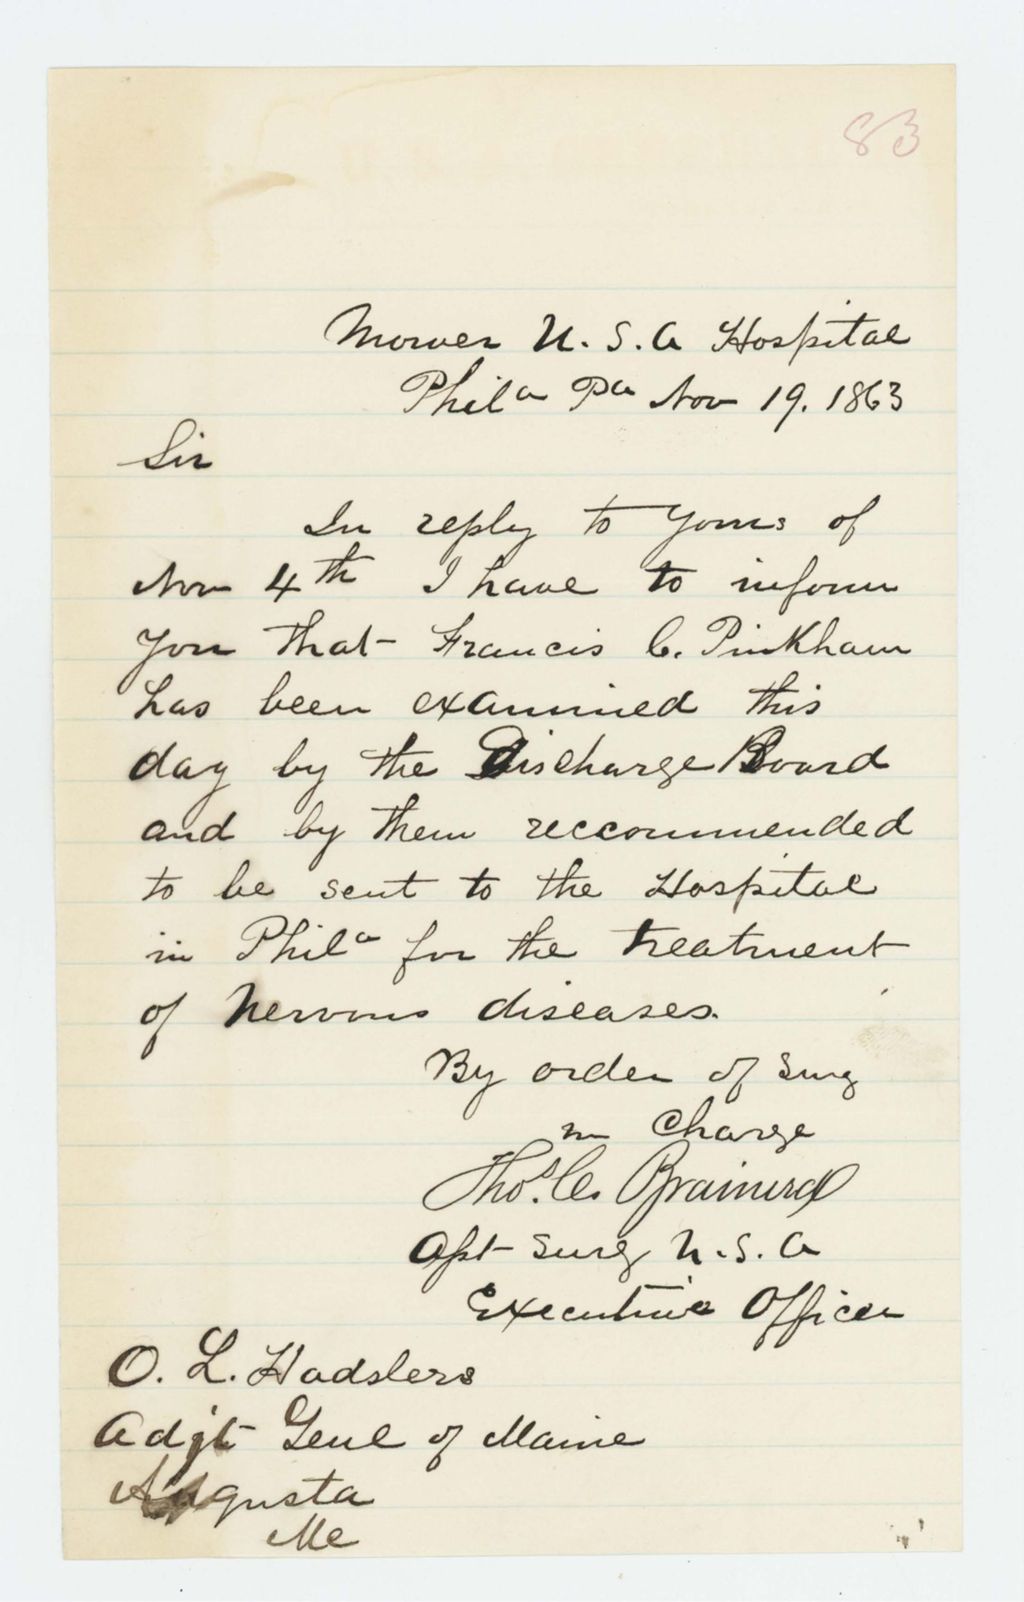 83
Mower U.S.A Hospital
Phila Pa Nov 19. 1863
Sir
In reply to yours of
Nov 4th I have to inform
you that Francis C. Pinkham
has been examined this
day by the Discharge Board
and by them reccommended
to be sent to the Hospital
in Phila for the treatment
of Nervous diseases.
By order of Surg
in Charge
Thos. C. Brainerd
Asst Surg U.S.A
Executive Officer
O. L. Hadslers
Adjt Genl of Maine
Augusta
Me